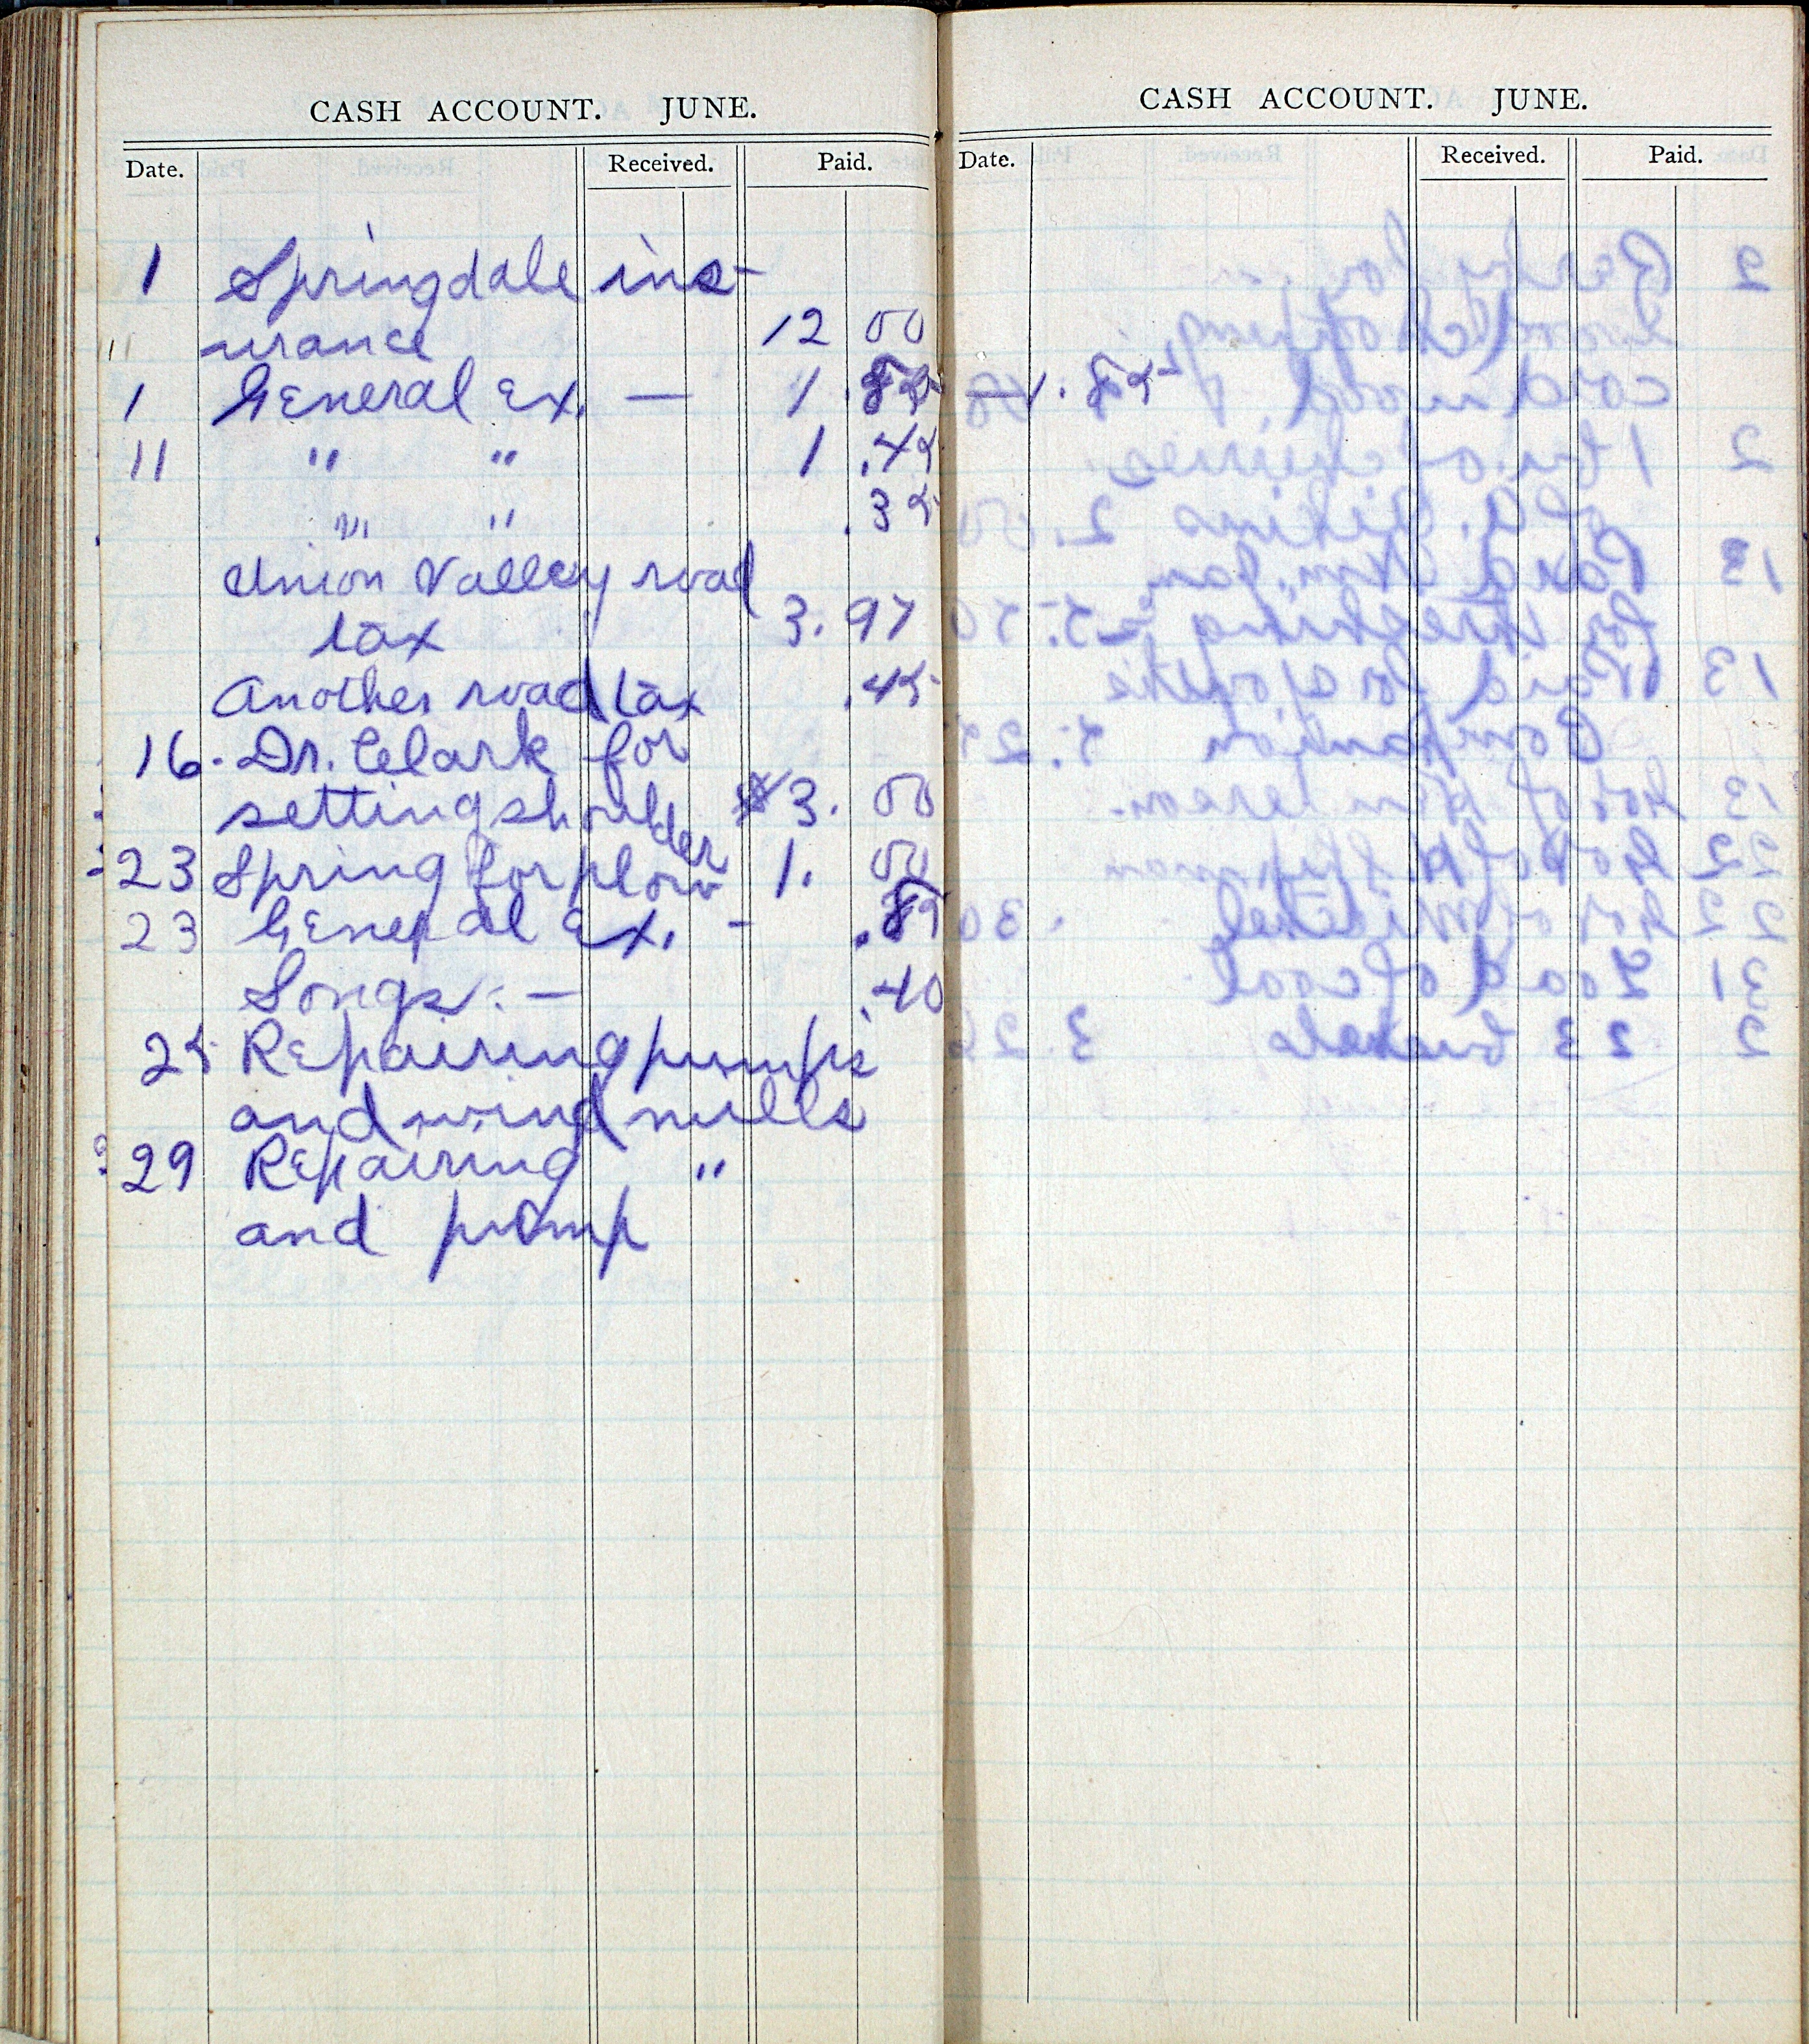 CASH ACCOUNT. JUNE.
Date. Received. Paid.
1 Springdale ins-
11 urance 12 00
1 General Ex. — 1.85 — 1.85
11 " " 1.45
" " .35
Union Valley road
tax 3.97
Another road tax .45
16. Dr. Clark for
setting shoulder $3. 00
23 Spring for plow 1. 00
23 General Ex. - .85
Songs. — .40
25 Repairing pumps
and wind mills
29 Repairing "
and pump
CASH ACCOUNT. JUNE.
Date. Received. Paid.